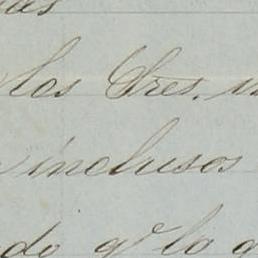 los Sres.
inclusos
do qe lo q